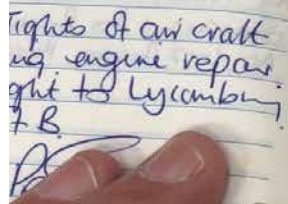 Tights of air craft
ng engine repair
ght to Lycombing
7 B.